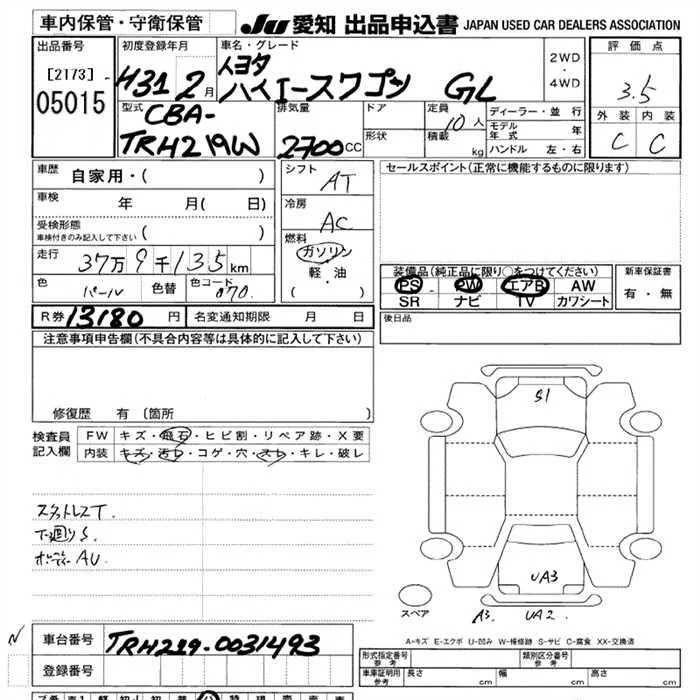 車内保管・守衛保管
JU 愛知 出品申込書 JAPAN USED CAR DEALERS ASSOCIATION
出品番号
[2173]-
05015
初度登録年月
H31 2月
車名・グレード
トヨタ
ハイエースワゴン GL
2WD
・
4WD
評価点
3.5
外装 内装
C C
型式
CBA-
TRH219W
排気量
2700CC
ドア
形状
定員
10人
積載
kg
ディーラー・並行
モデル年式 年
ハンドル 左・右
車歴
自家用・( )
車検
年 月( 日)
受検形態
車検付きのみ記入して下さい ( )
走行
37万9千135km
色
パール
色替
色コード
070
シフト
AT
冷房
AC
燃料
ガソリン
軽・油
( )
セールスポイント(正常に機能するものに限ります)
装備品(純正品に限り○をつけてください)
PS PW エアB AW
SR ナビ TV カワシート
新車保証書
有・無
R券 13180円
名変通知期限 月 日
後日品
注意事項申告欄(不具合内容等は具体的に記入して下さい)
修復歴 有〔箇所 〕
検査員
記入欄
FW キズ・飛石・ヒビ割・リペア跡・X要
内装 キズ・汚レ・コゲ・穴・スレ・キレ・破レ
スタットレスT.
下廻りS.
ボディーAU.
S1
UA3
A3. UA2.
スペア
A-キズ E-エクボ U-凹み W-補修跡 S-サビ C-腐食 XX-交換済
N
車台番号
TRH219-0031493
登録番号
形式指定番号
参考
類別区分番号
参考
車庫証明用
参考
長さ cm
幅 cm
高さ cm